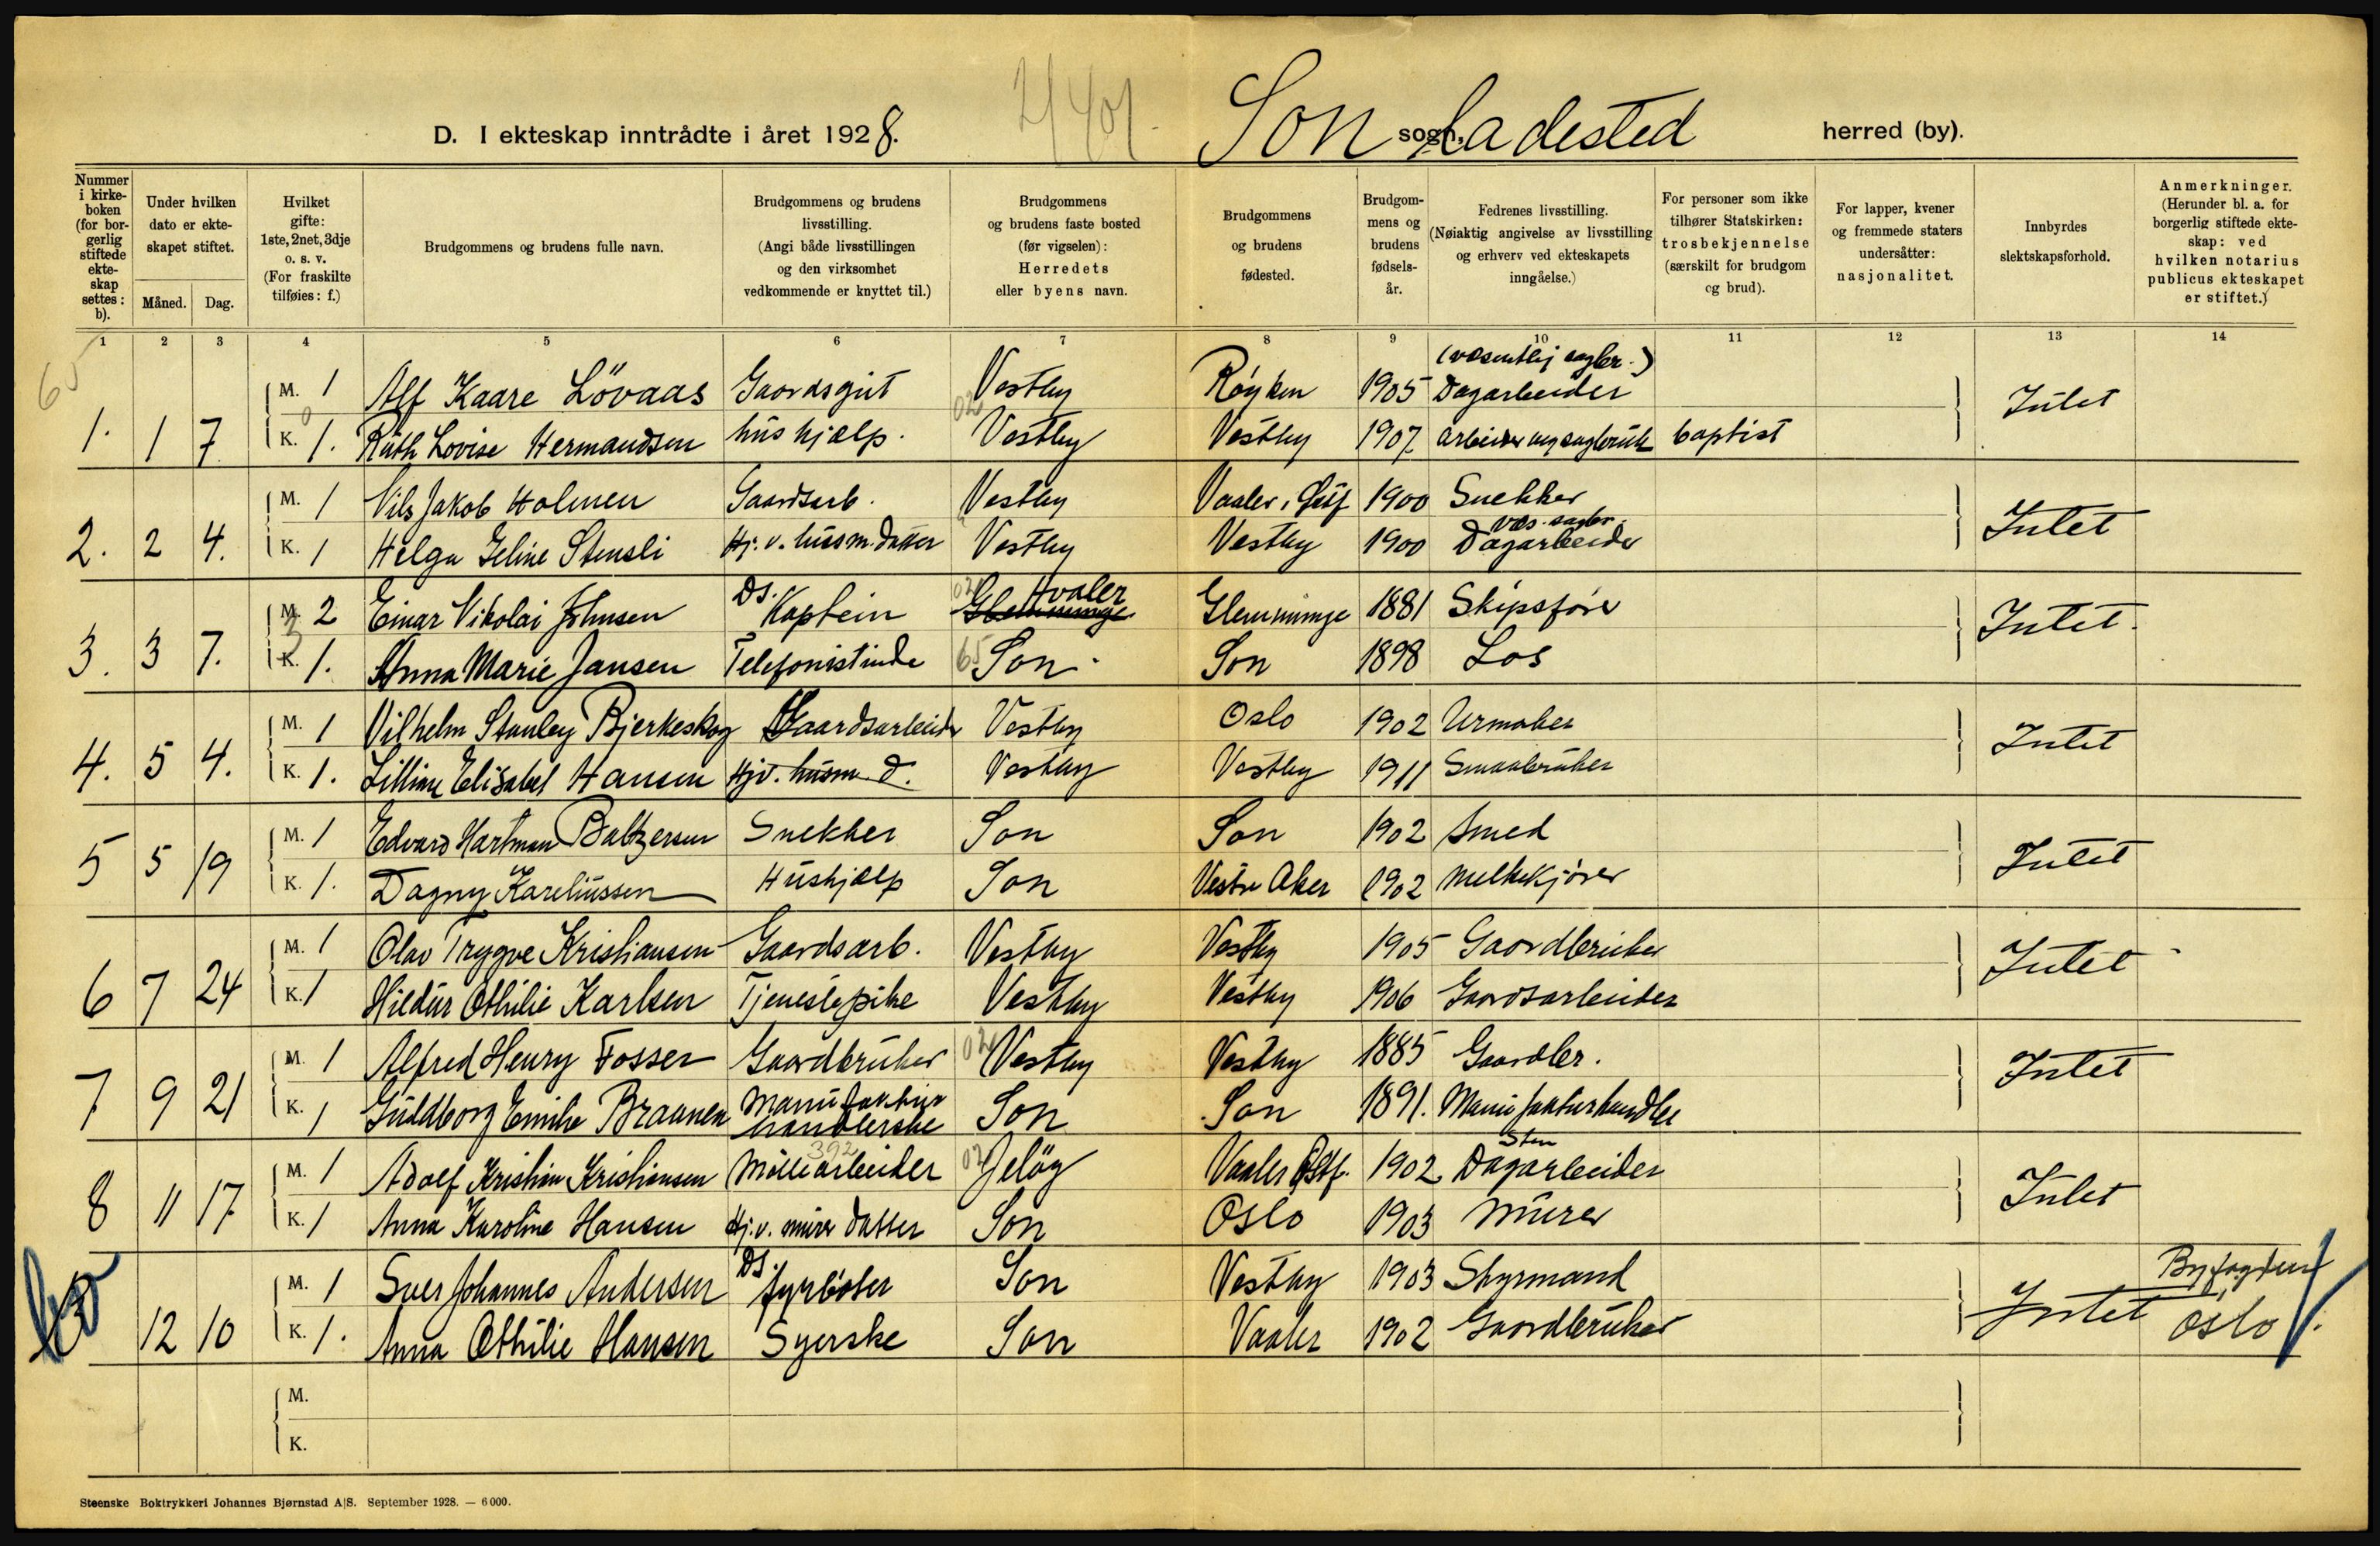 D. I ekteskap inntrådte i året 1928.
Son sogn, Ladested herred (by).
Nummer i kirkeboken (for borgerlig stiftede ekteskap settes: b).
Under hvilken dato er ekteskapet stiftet.
Måned. Dag.
Hvilket gifte: 1ste, 2net, 3dje o. s. v. (For fraskilte tilføies: f.)
Brudgommens og brudens fulle navn.
Brudgommens og brudens livsstilling. (Angi både livsstillingen og den virksomhet vedkommende er knyttet til.)
Brudgommens og brudens faste bosted (før vigselen): Herredets eller byens navn.
Brudgommens og brudens fødested.
Brudgommens og brudens fødselsår.
Fedrenes livsstilling. (Nøiaktig angivelse av livsstilling og erhverv ved ekteskapets inngåelse.)
For personer som ikke tilhører Statskirken: trosbekjennelse (særskilt for brudgom og brud).
For lapper, kvener og fremmede staters undersåtter: nasjonalitet.
Innbyrdes slektskapsforhold.
Anmerkninger. (Herunder bl. a. for borgerlig stiftede ekteskap: ved hvilken notarius publicus ekteskapet er stiftet.)
1 2 3 4 5 6 7 8 9 10 11 12 13 14
65
(væsentlig sagbr.)
M. 1 Alf Kaare Lövaas Gaardsgut Vestby Røyken 1905 Dagarbeider
1. 1 7 Intet
K. 1. Ruth Lovise Hermandsen hushjælp. Vestby Vestby 1907 arbeider sagbruk baptist
M. 1 Nils Jakob Holmen Gaardsarb. Vestby Vaaler, Østf 1900 Snekker
2. 2 4. Intet
væs. sagbr.
K. 1 Helga Geline Stensli Hj. v. hussm. datter Vestby Vestby 1900 Dagarbeider
M. 2 Einar Nikolai Johnsen DS. Kaptein Glemminge Hvaler Glemminge 1881 Skipsfører
3. 3 7. Intet.
K. 1. Anna Marie Jansen Telefonistinde 65 Son Son 1898 Los
M. 1 Vilhelm Stanley Bjerkeskog Gaardsarbeider Vestby Oslo 1902 Urmaker
4. 5 4. Intet
K. 1. Lilliane Elisabet Hansen Hjv. husm. d. Vestby Vestby 1911 Smaabruker
M. 1 Edvard Hartman Baltzersen Snekker Son Son 1902 Smed
5 5 19 Intet
K. 1. Dagny Kareliussen Hushjælp Son Vestre Aker 1902 Melkekjører
M. 1 Olav Trygve Kristiansen Gaardsarb. Vestby Vestby 1905 Gaardbruker
6 7 24 Intet
K. 1 Hildur Othilie Karlsen Tjenestepike Vestby Vestby 1906 Gaardsarbeider
M. 1 Alfred Henry Fosser Gaardbruker Vestby Vestby 1885 Gaardbr.
7 9 21 Intet
K. 1 Guldborg Emilie Braanen Manufakturhandlerske Son Son 1891. Manufakturhandler
M. 1 Adolf Kristian Kristiansen Møllearbeider 392 Jeløy Vaaler Østf. 1902 Sten Dagarbeider
8 11 17 Intet
K. 1 Anna Karoline Hansen Hj. v. murer datter Son Oslo 1903 Murer
M. 1 Sver Johannes Andersen DS. fyrbøter Son Vestby 1903 Styrmand
12 10 Intet Byfogden Oslo.
K. 1. Anna Othilie Hansen Syerske Son Vaaler 1902 Gaardbruker
M.
K.
Steenske Boktrykkeri Johannes Bjørnstad A/S. September 1928. — 6000.